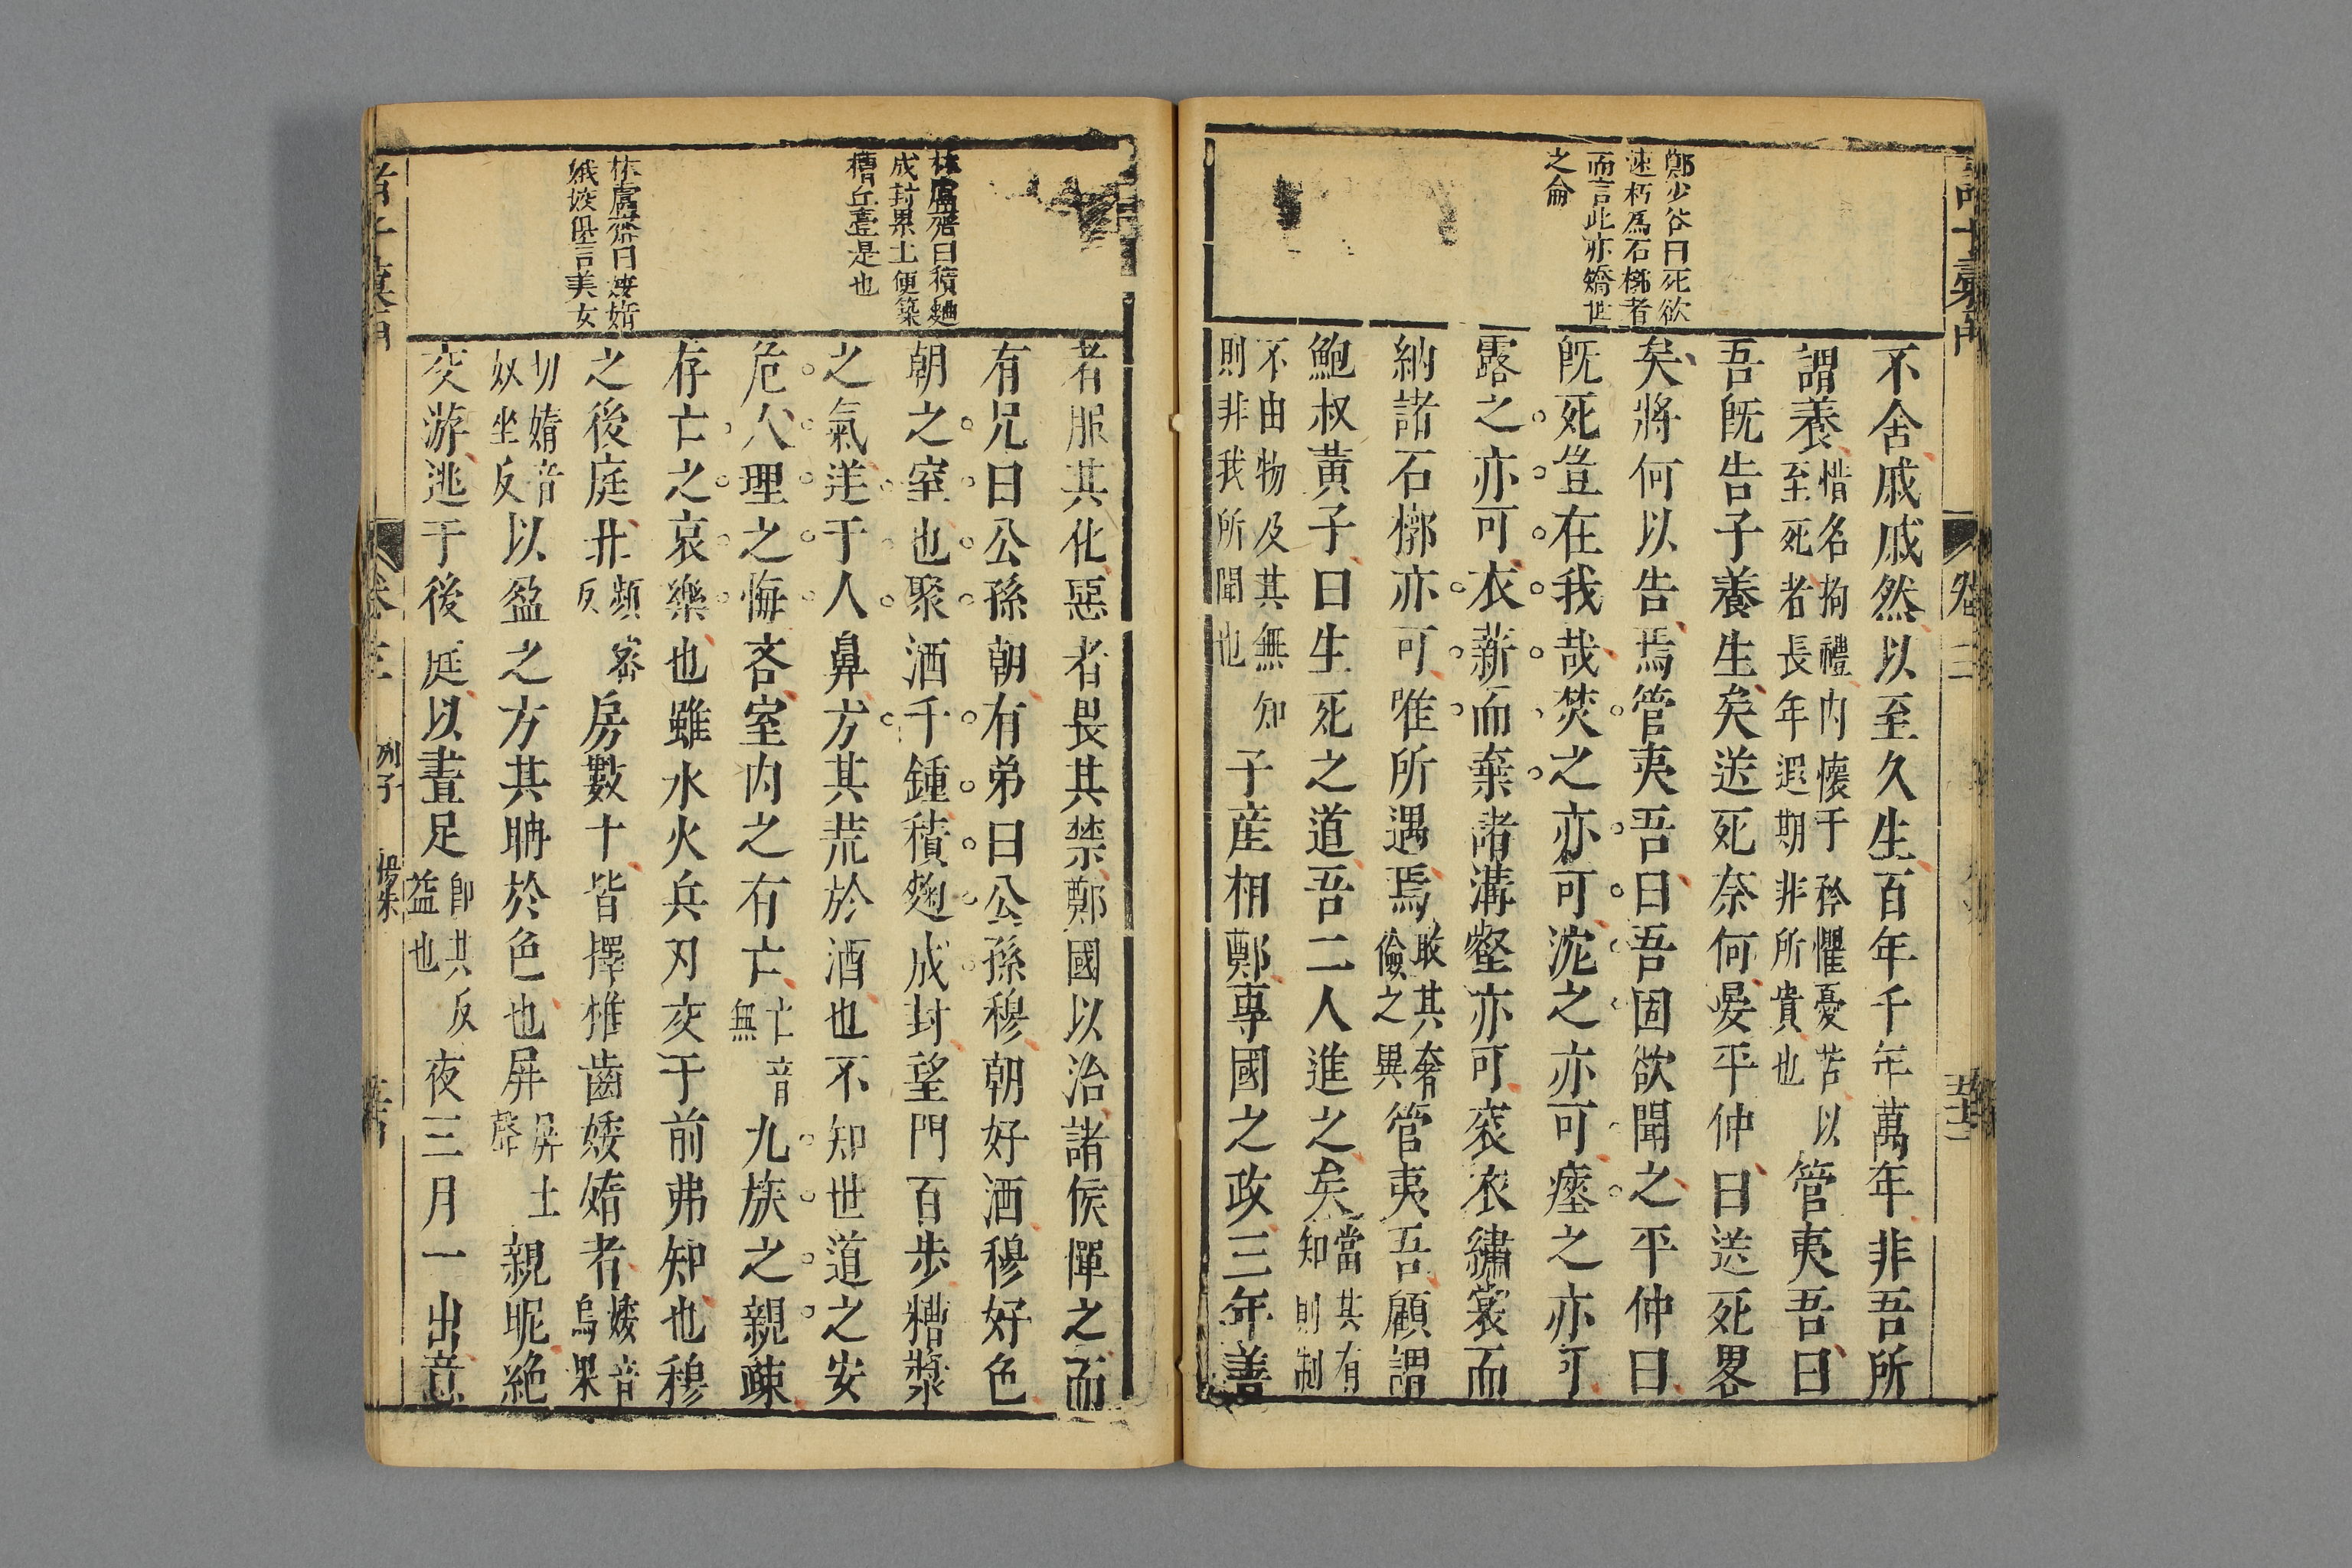 鄭少谷曰死欲
速朽為石槨者
而言此亦矯世
之侖
不舍戚戚然以至久生百年千年萬年非吾所
謂養惜名拘禮内懷于矜懼憂苦以至死者長年遐期非所貴也管夷吾曰
吾旣告子養生矣送死奈何晏平仲曰送死畧
矣將何以告焉管夷吾曰吾固欲聞之平仲曰
旣死豈在我哉焚之亦可沈之亦可瘞之亦可
露之亦可衣薪而棄諸溝壑亦可衮衣繡裳而
納諸石槨亦可唯所遇焉敢其奢儉之異管夷吾顧謂
鮑叔黃子曰生死之道吾二人進之矣當其有知則制
不由物及其無知則非我所聞也子産相鄭專國之政三年善
卷三
林鬳齋曰積麯
成封累土便築
糟丘臺是也
林鬳齋曰婑媠
娥媌但言美女
者服其化惡者畏其禁鄭國以治諸侯憚之而
有兄曰公孫朝有弟曰公孫穆朝好酒穆好色
朝之室也聚酒千鍾積麴成封望門百步糟漿
之氣逆于人鼻方其荒於酒也不知世道之安
危人理之悔吝室内之有亡亡音無九族之親疎
存亡之哀樂也雖水火兵刃交于前弗知也穆
之後庭比頻密反房數十皆擇稚齒婑媠者婑音烏果
切媠音奴坐反以盈之方其聃於色也屏屏上聲親昵絶
交游逃于後庭以晝足卽其反益也夜三月一出意
卷三
列子
楊朱